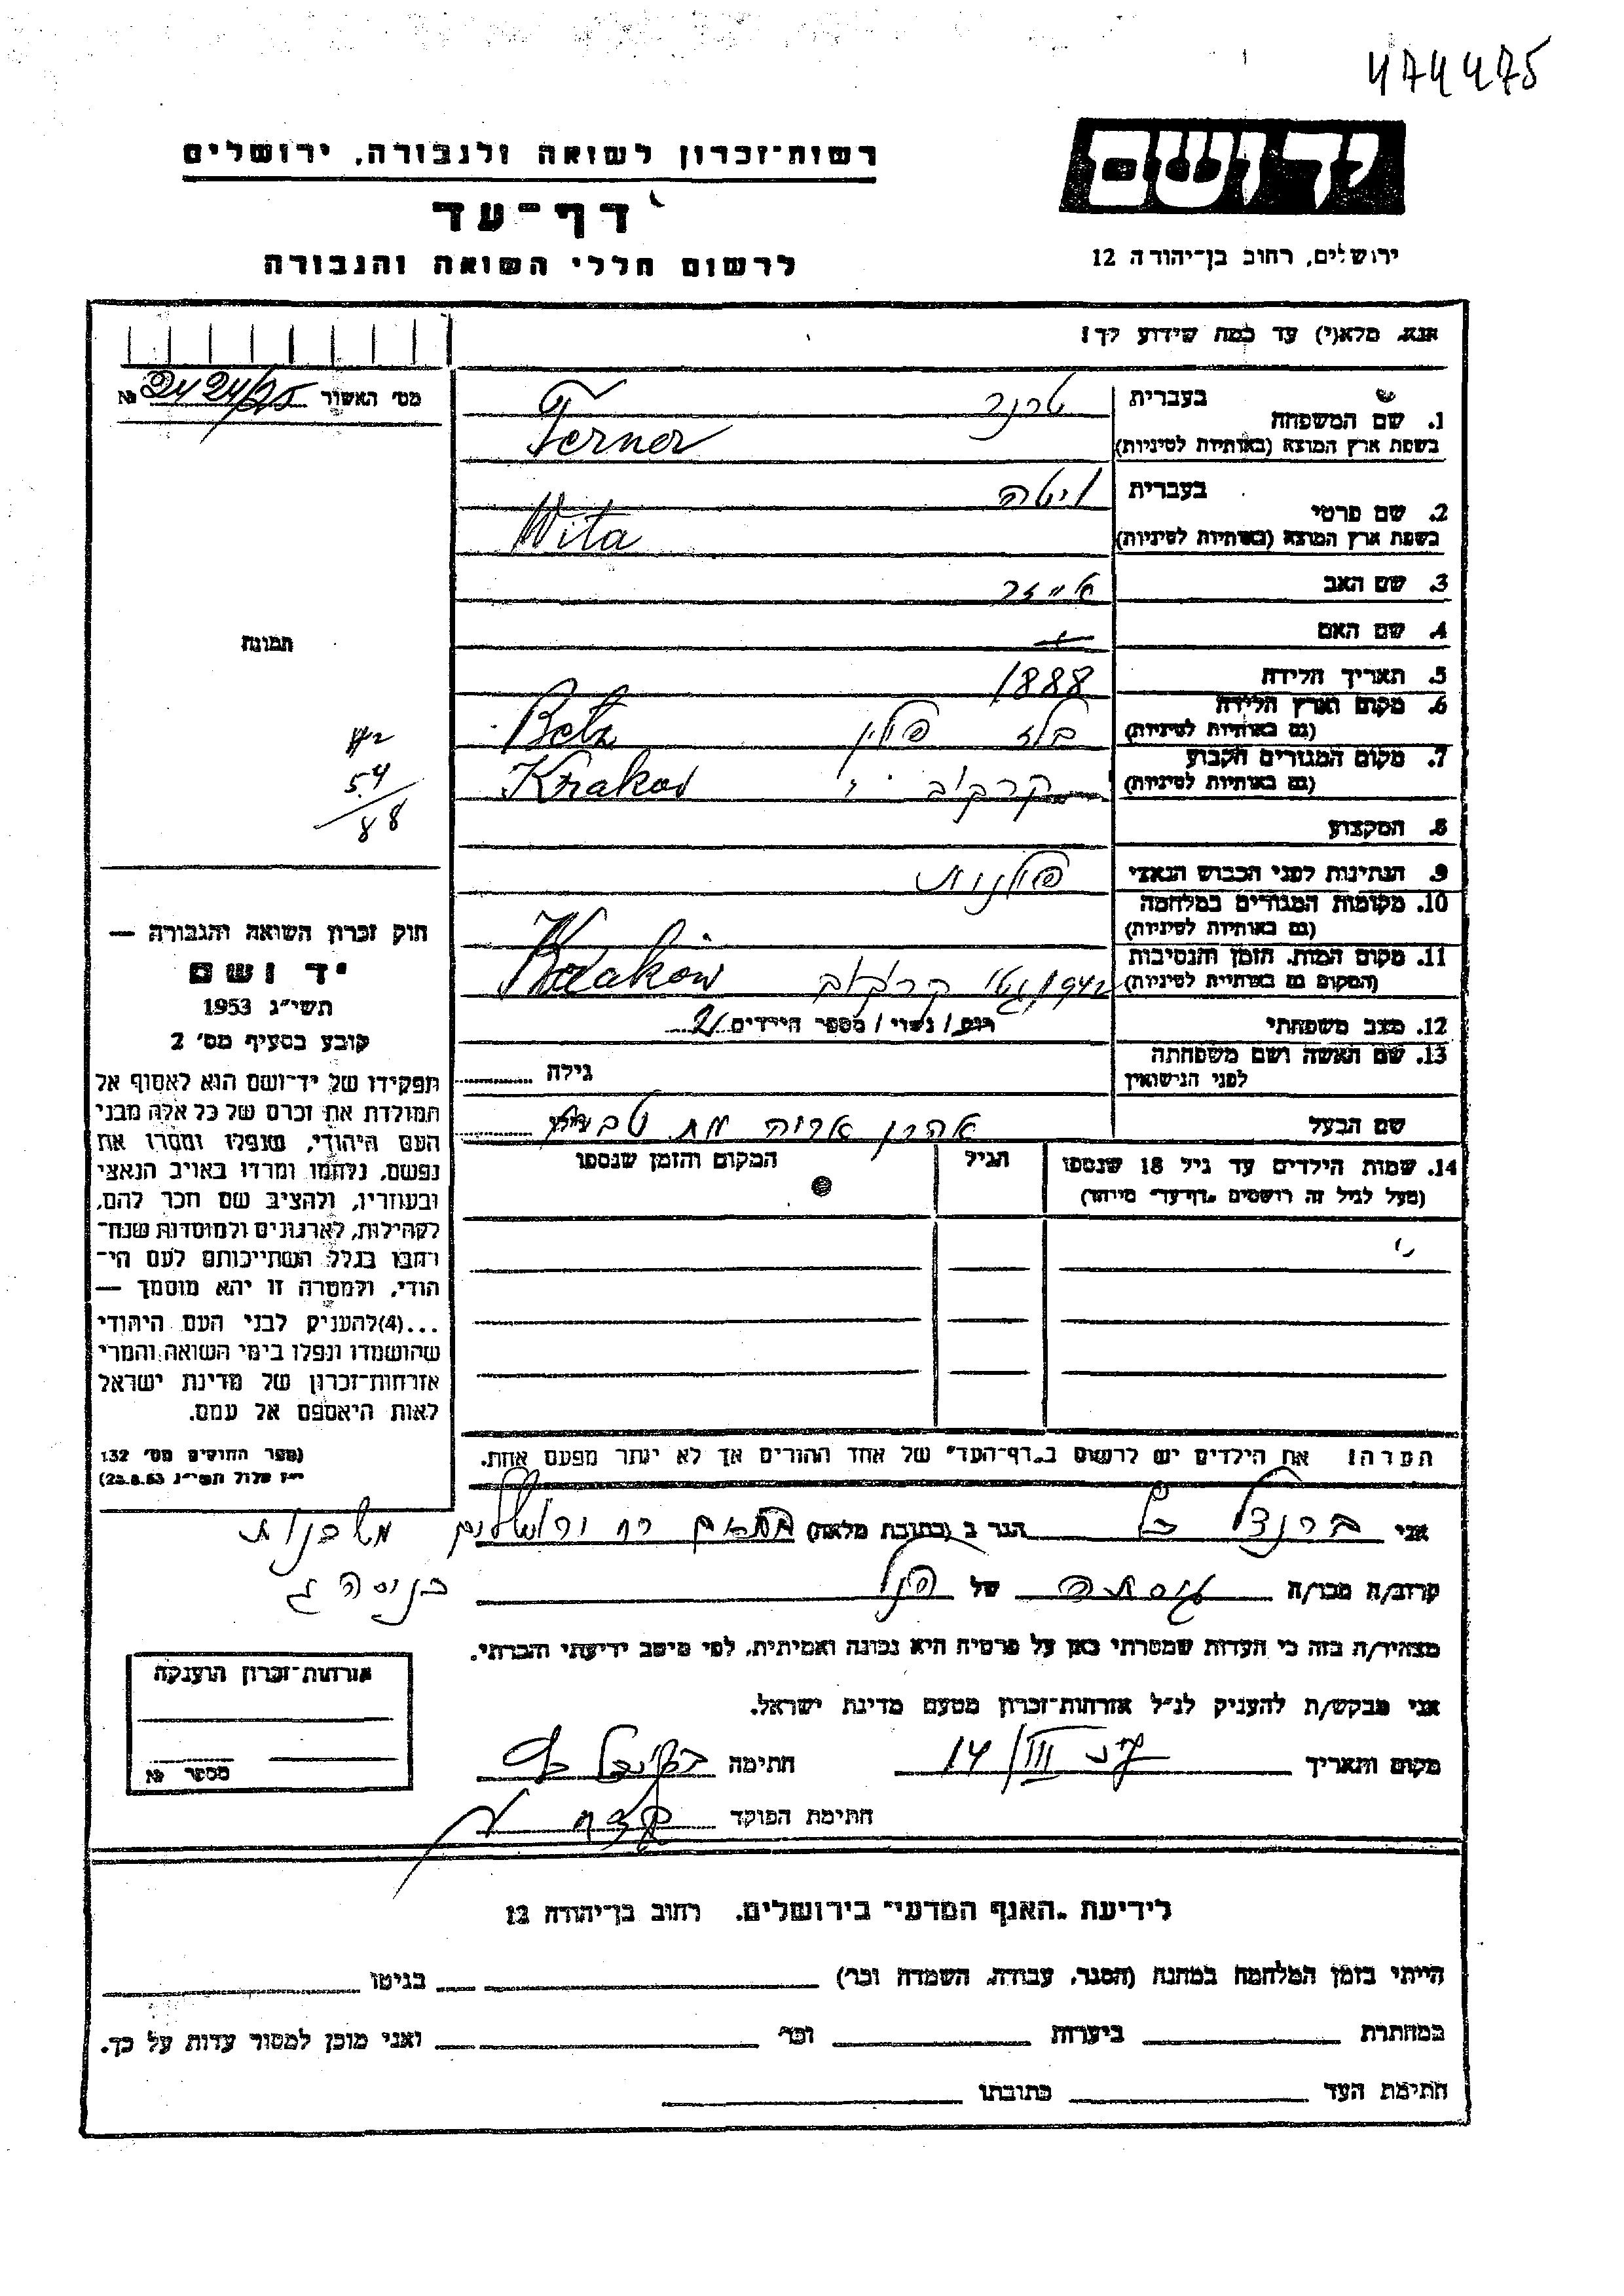 474475
רשות־זכרון לשואה ולגבורה, ירושלים
יד ושם
דף־עד
לרשום חללי השואה והגבורה
ירושלים, רחוב בן־יהודה 12
אנא, מלא(י) עד כמה שידוע לך!
מס׳ האשור 2424/25 №
1. שם המשפחה
בעברית טרנר
בשפת ארץ המוצא (באותיות לטיניות) Terner
2. שם פרטי
בעברית ויטה
בשפת ארץ המוצא (באותיות לטיניות) Wita
3. שם האב
4. שם האם
תמונה
5. תאריך הלידה 1888
6. מקום וארץ הלידה
(גם באותיות לטיניות) בלז פולין Betz
7. מקום המגורים הקבוע
(גם באותיות לטיניות) קרקוב Krakov
54
88
8. המקצוע
9. הנתינות לפני הכבוש הנאצי פולנית
10. מקומות המגורים במלחמה
(גם באותיות לטיניות)
11. מקום המות, הזמן והנסיבות
(המקום גם באותיות לטיניות) 1942 גטו קרקוב Krakow
12. מצב משפחתי רוק / נשוי / מספר הילדים 2
13. שם האשה ושם משפחתה
לפני הנישואין
גילה
שם הבעל אהרן אריה
14. שמות הילדים עד גיל 18 שנספו
(מעל לגיל זה רושמים „דף־עד״ מיוחד)
הגיל
המקום והזמן שנספו
חוק זכרון השואה והגבורה —
יד ושם
תשי״ג 1953
קובע בסעיף מס׳ 2
תפקידו של יד־ושם הוא לאסוף אל
המולדת את זכרם של כל אלה מבני
העם היהודי, שנפלו ומסרו את
נפשם, נלחמו ומרדו באויב הנאצי
ובעוזריו, ולהציב שם וזכר להם,
לקהילות, לארגונים ולמוסדות שנח־
רבו בגלל השתייכותם לעם הי־
הודי, ולמטרה זו יהא מוסמך —
...(4)להעניק לבני העם היהודי
שהושמדו ונפלו בימי השואה והמרי
אזרחות־זכרון של מדינת ישראל
לאות היאספם אל עמם.
(ספר החוקים מס׳ 132
י״ז אלול תשי״ג 28.8.53)
הערה! את הילדים יש לרשום ב„דף־העד״ של אחד ההורים אך לא יותר מפעם אחת.
אני ברנדל הגר ב (כתובת מלאה)
קרוב/ה מכר/ה של הנ״ל
מצהיר/ה בזה כי העדות שמסרתי כאן על פרטיה היא נכונה ואמיתית, לפי מיטב ידיעתי והכרתי.
אני מבקש/ת להעניק לנ״ל אזרחות־זכרון מטעם מדינת ישראל.
מקום ותאריך 14/III חתימה
חתימת הפוקד
אזרחות־זכרון הוענקה
מספר №
לידיעת „האגף המדעי״ בירושלים, רחוב בן־יהודה 12
הייתי בזמן המלחמה במחנה (הסגר, עבודה, השמדה וכו׳) בגיטו
במחתרת ביערות וכו׳ ואני מוכן למסור עדות על כך.
חתימת העד כתובתו